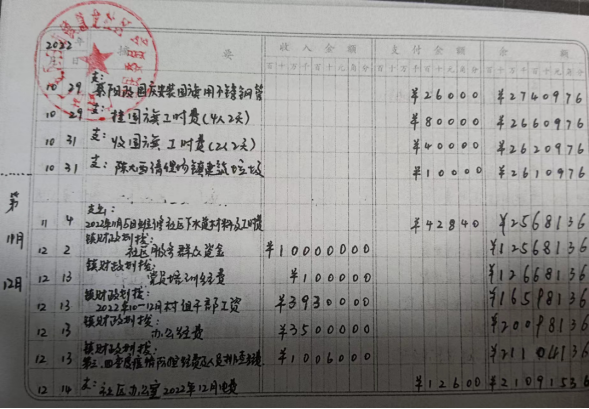 2022
摘 要
收入金额
支付金额
余 额
月 日
百十万千百十元角分
百十万千百十元角分
百十万千百十元角分
支:
10 29 国庆安装国旗用不锈钢管 ¥26000 ¥2740976
10 29 支: 挂国旗工时费(4人2天) ¥80000 ¥2660976
10 31 支: 收国旗工时费(2人2天) ¥40000 ¥2620976
10 31 支: 请保洁镇建筑垃圾 ¥10000 ¥2610976
第
11月
12月
11 4 2022年11月5日社区下水道材料及工时费 ¥42840 ¥2568136
镇财政划拨:
12 2 社区服务群众资金 ¥10000000 ¥12568136
镇财政划拨:
12 13 党员培训经费 ¥100000 ¥12668136
镇财政划拨:
12 13 2022年10-12月村组干部工资 ¥3930000 ¥16598136
镇财政划拨:
12 13 办公经费 ¥3500000 ¥20098136
镇财政划拨:
12 13 第三、四季度疫情防控经费及人员 ¥1006000 ¥21104136
12 14 支: 社区办公室2022年12月电费 ¥12600 ¥21091536